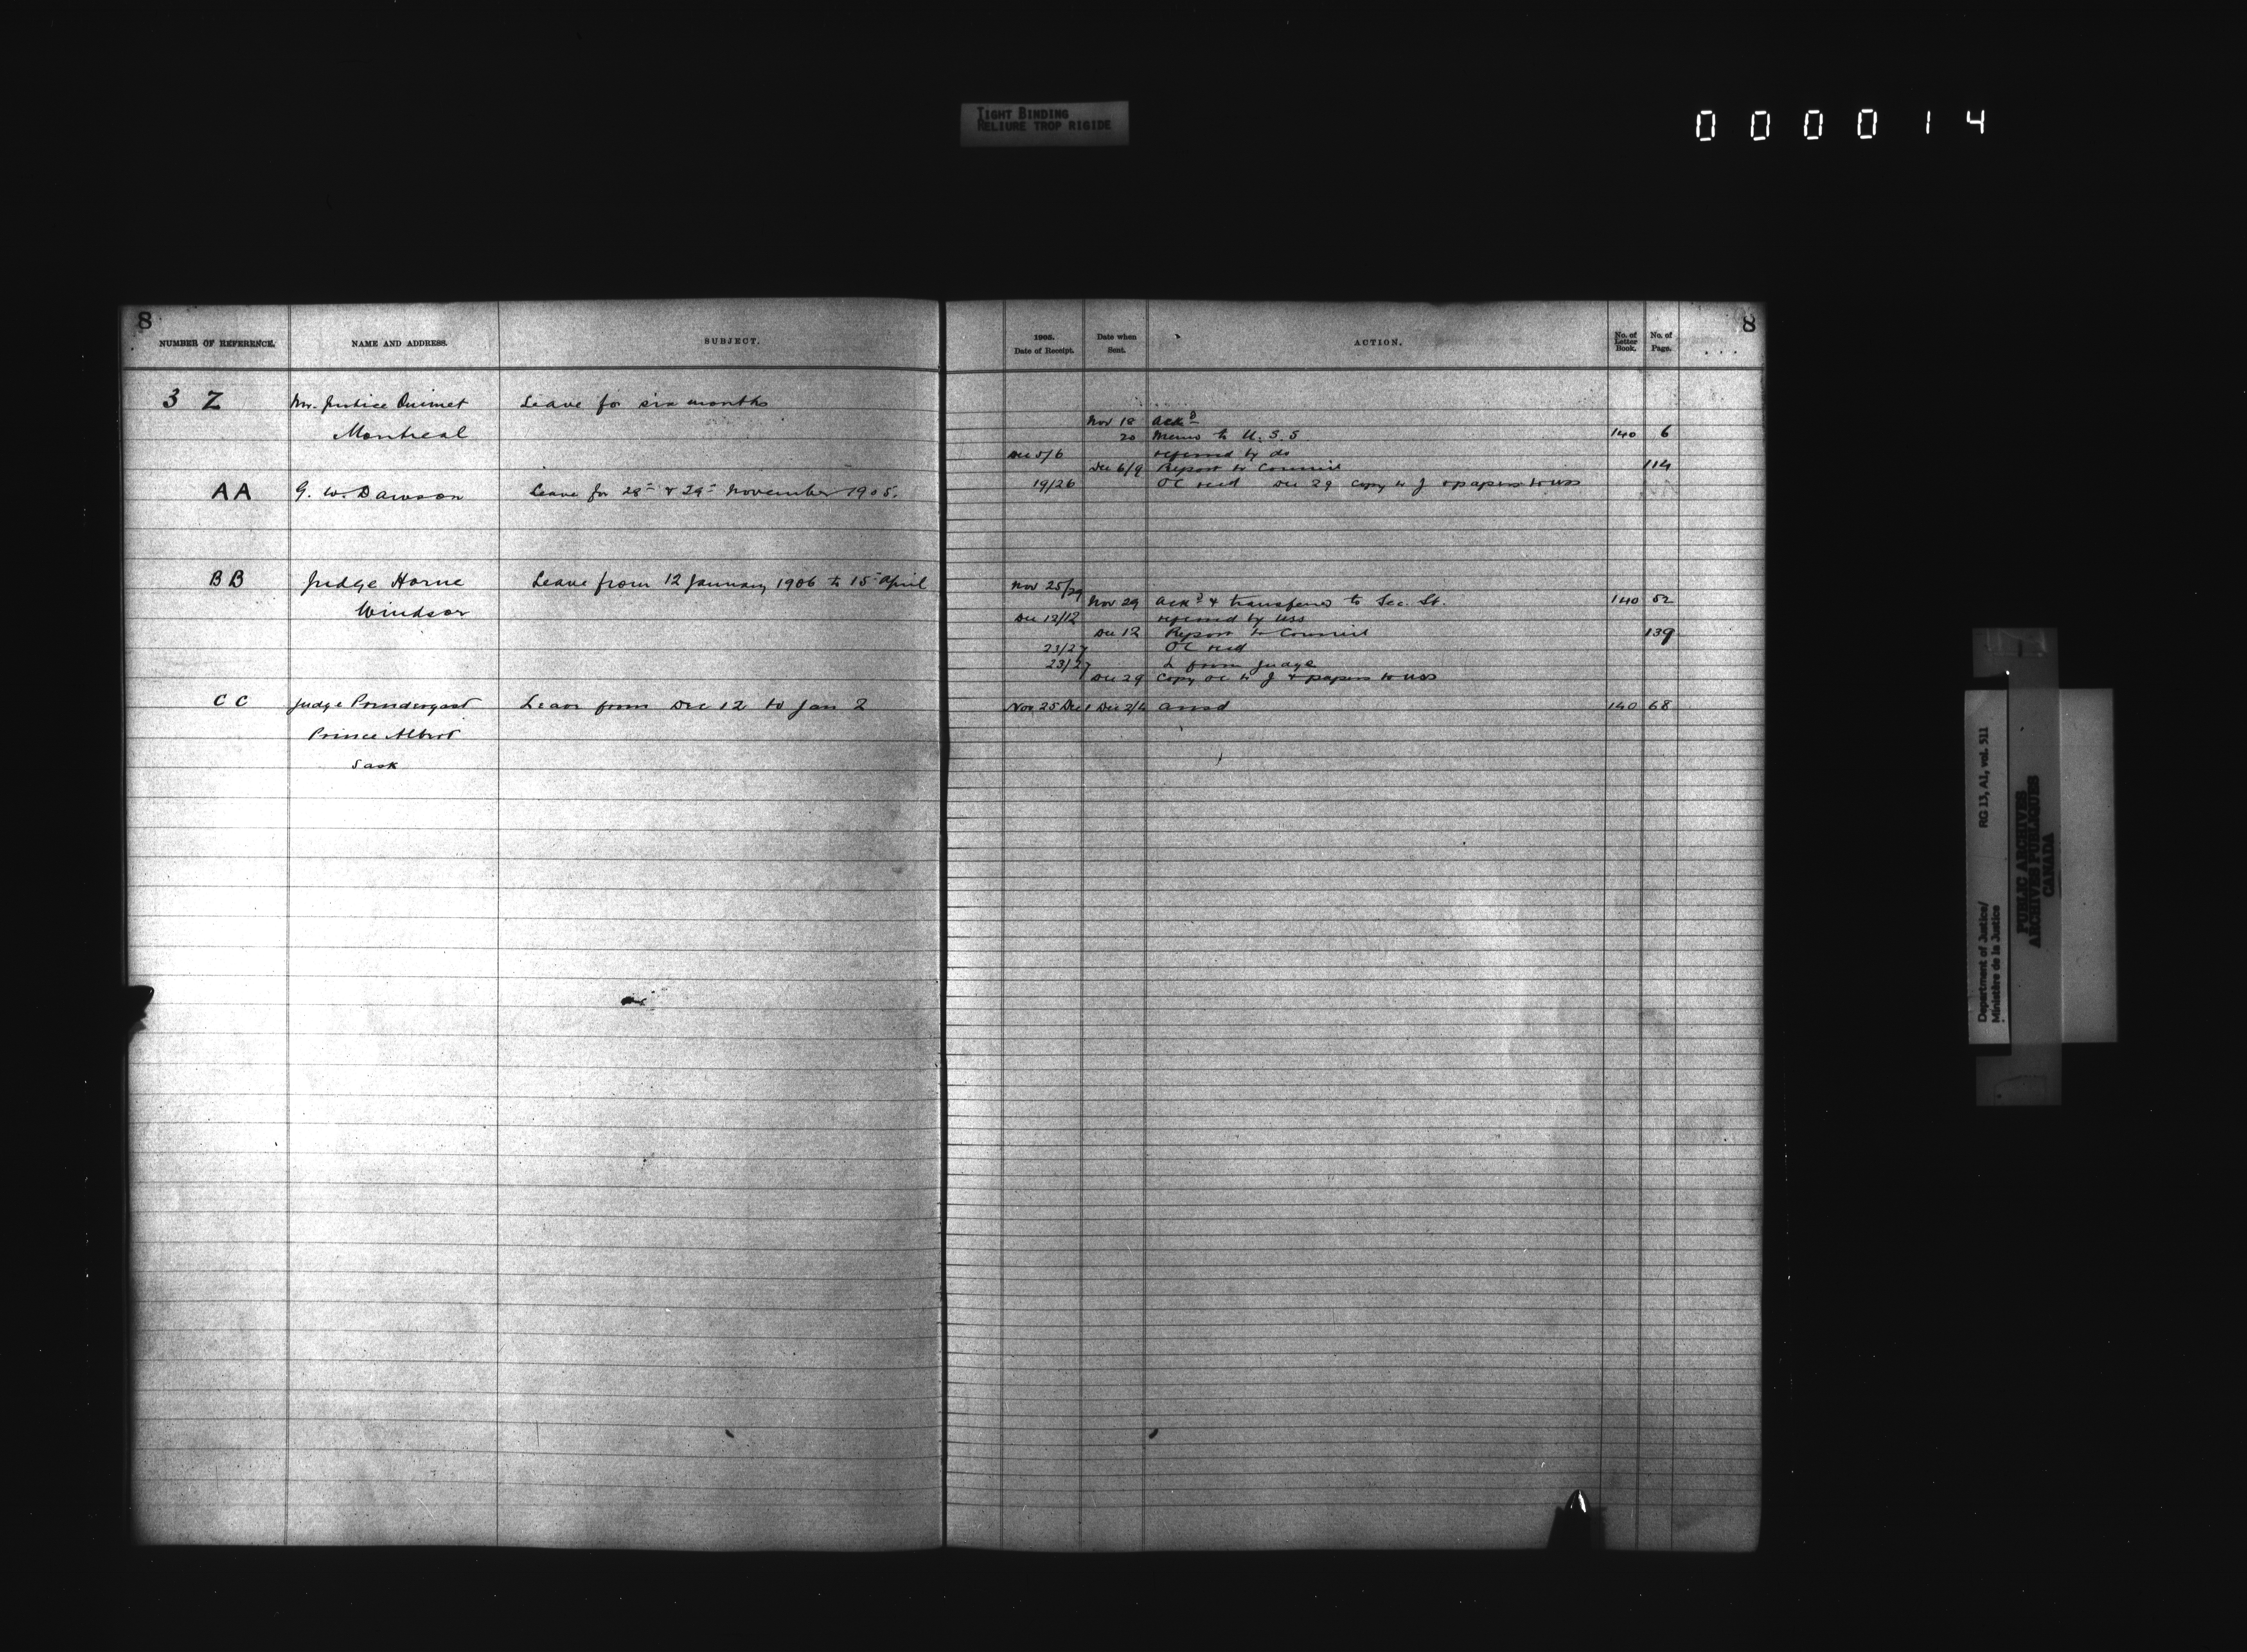 TIGHT BINDING
RELIURE TROP RIGIDE
000014
8
NUMBER OF REFERENCE. NAME AND ADDRESS. SUBJECT.
3 Z Mr. Justice Ouimet Leave for six months
Montreal
AA G. W. Dawson Leave for 28th & 29th November 1905.
BB Judge Horne Leave from 12 January 1906 to 15th April
Windsor
CC Judge Prendergast Leave from Dec 12 to Jan 2
Prince Albert
Sask
8
1905. Date of Receipt. Date when Sent. ACTION. No. of Letter Book. No. of Page.
Nov 18 Ackd
20 Memo to U.S.S. 140 6
Dec 5/6 referred by do
Dec 6/9 Report to Council 114
19/26 OC recd Dec 29 Copy to J & papers to USS
Nov 25/29
Nov 29 Ackd & transferred to Sec. St. 140 52
Dec 12/12 referred by USS
Dec 12 Report to Council 139
23/27 OC recd
23/27 L from Judge
Dec 29 Copy OC to J & papers to USS
Nov 25 Dec 1 Dec 2/4 ansd 140 68
Department of Justice/ RG 13, A1, vol. 511
Ministère de la Justice
PUBLIC ARCHIVES
ARCHIVES PUBLIQUES
CANADA